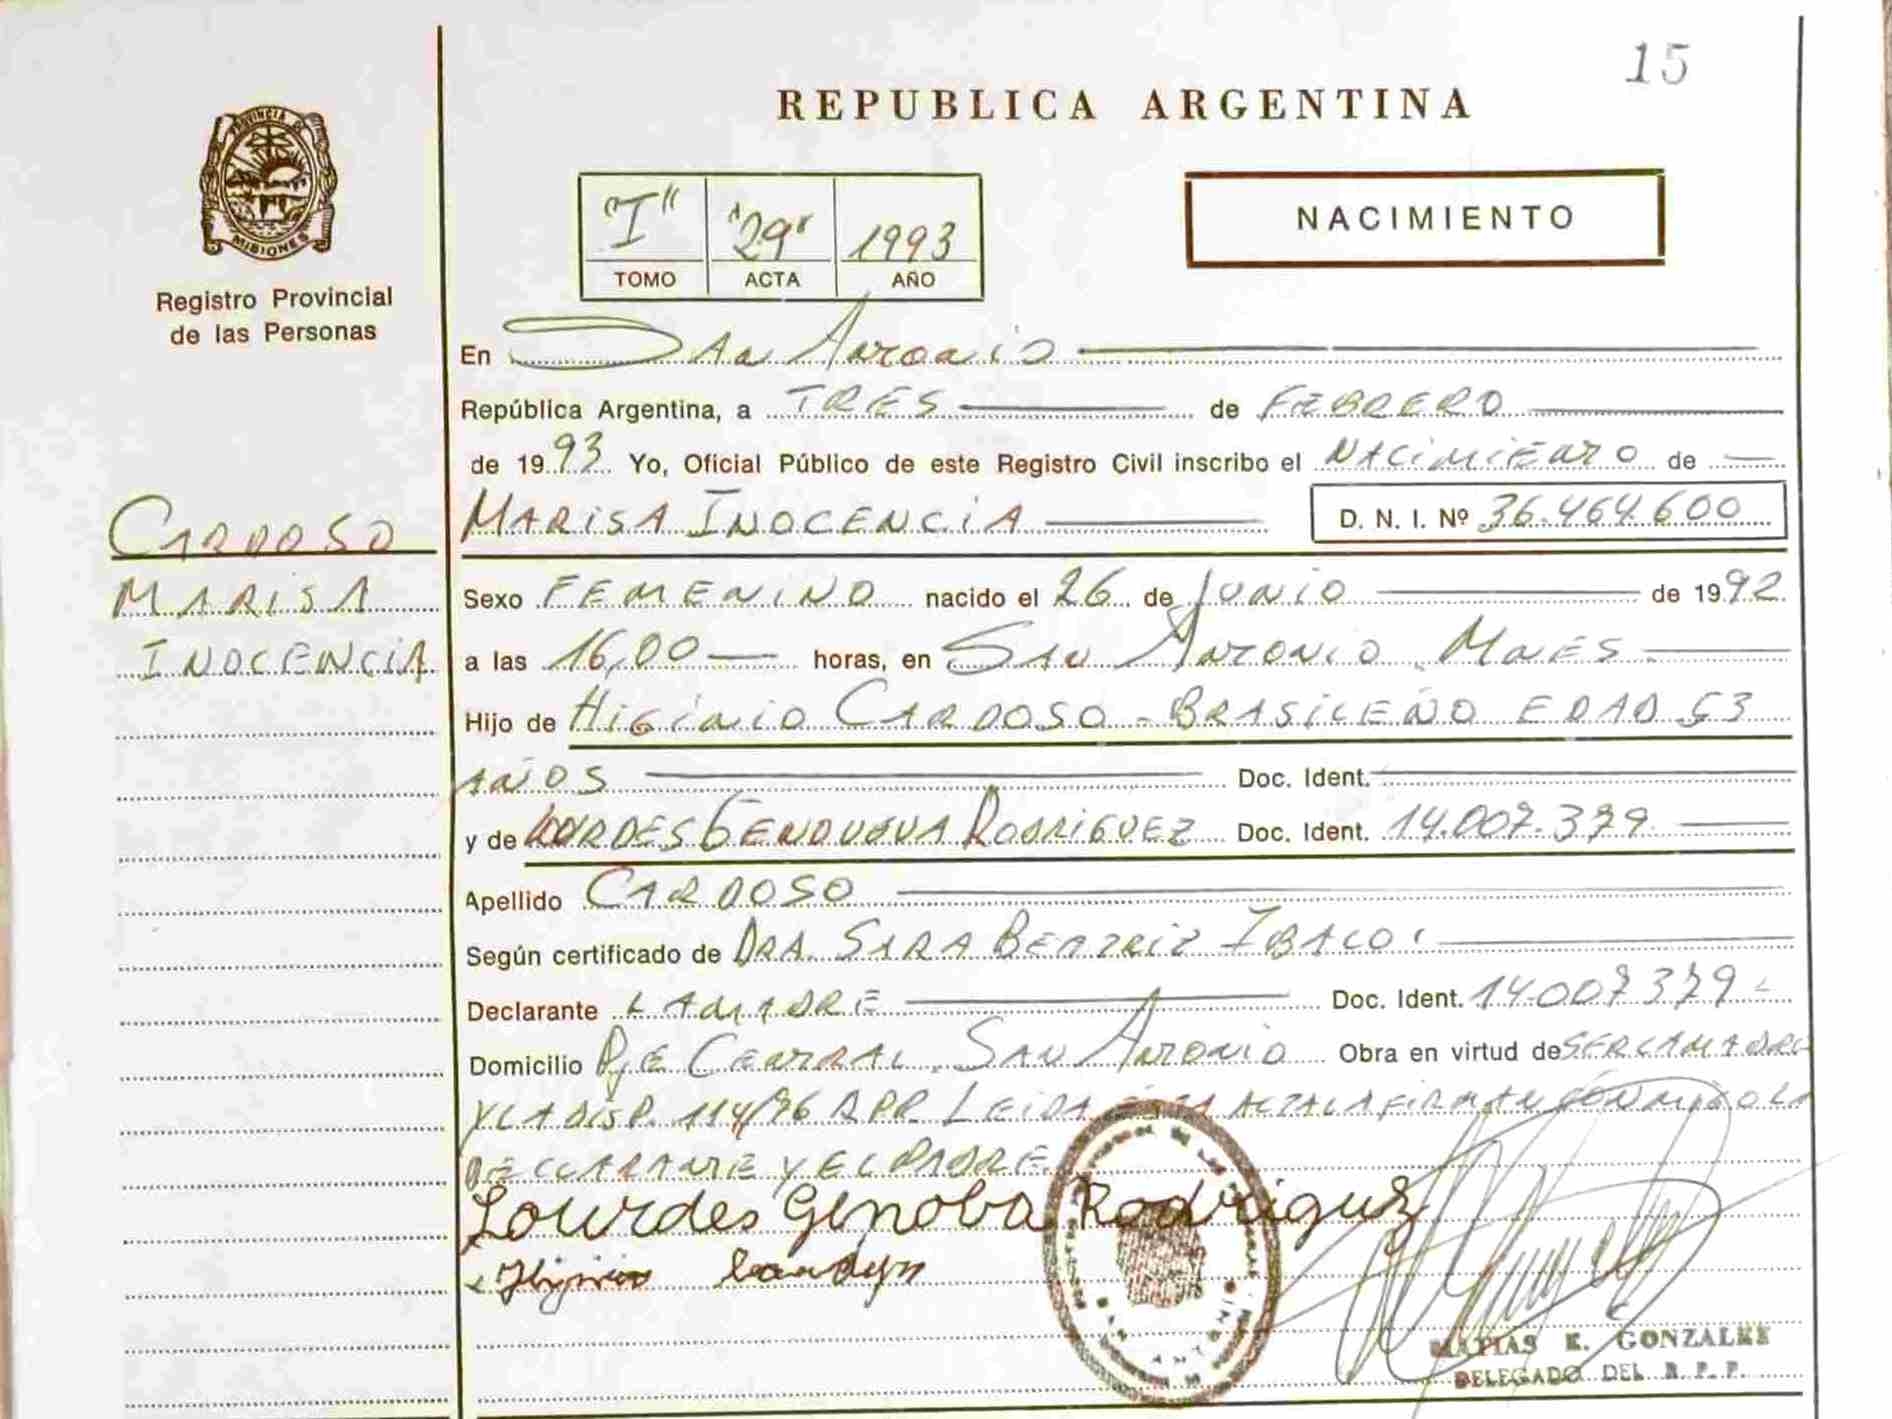 15
REPUBLICA ARGENTINA
PROVINCIA DE
MISIONES
Registro Provincial
de las Personas
"I" "29" 1993
TOMO ACTA AÑO
NACIMIENTO
En San Antonio
República Argentina, a TRES de FEBRERO
de 1993 Yo, Oficial Público de este Registro Civil inscribo el NACIMIENTO de
CARDOSO
MARISA
INOCENCIA
MARISA INOCENCIA D. N. I. Nº 36.464.600
Sexo FEMENINO nacido el 26 de JUNIO de 1992
a las 16,00 horas, en SAN ANTONIO MNES
Hijo de HIGINIO CARDOSO - BRASILEÑO EDAD 53
AÑOS Doc. Ident.
y de LOURDES GENOVEVA RODRIGUEZ Doc. Ident. 14.007.379
Apellido CARDOSO
Según certificado de DRA. SARA BEATRIZ
Declarante LA MADRE Doc. Ident. 14.007.379
Domicilio Pje CENTRAL SAN ANTONIO Obra en virtud de SER LA MADRE
Y LA DISP. 114/96 RPP. LEIDA ACTA LA FIRMAN CONMIGO LA
DECLARANTE Y EL PADRE
Lourdes Genoba Rodriguz
Higinio
MATIAS E. GONZALEZ
DELEGADO DEL R. P. P.